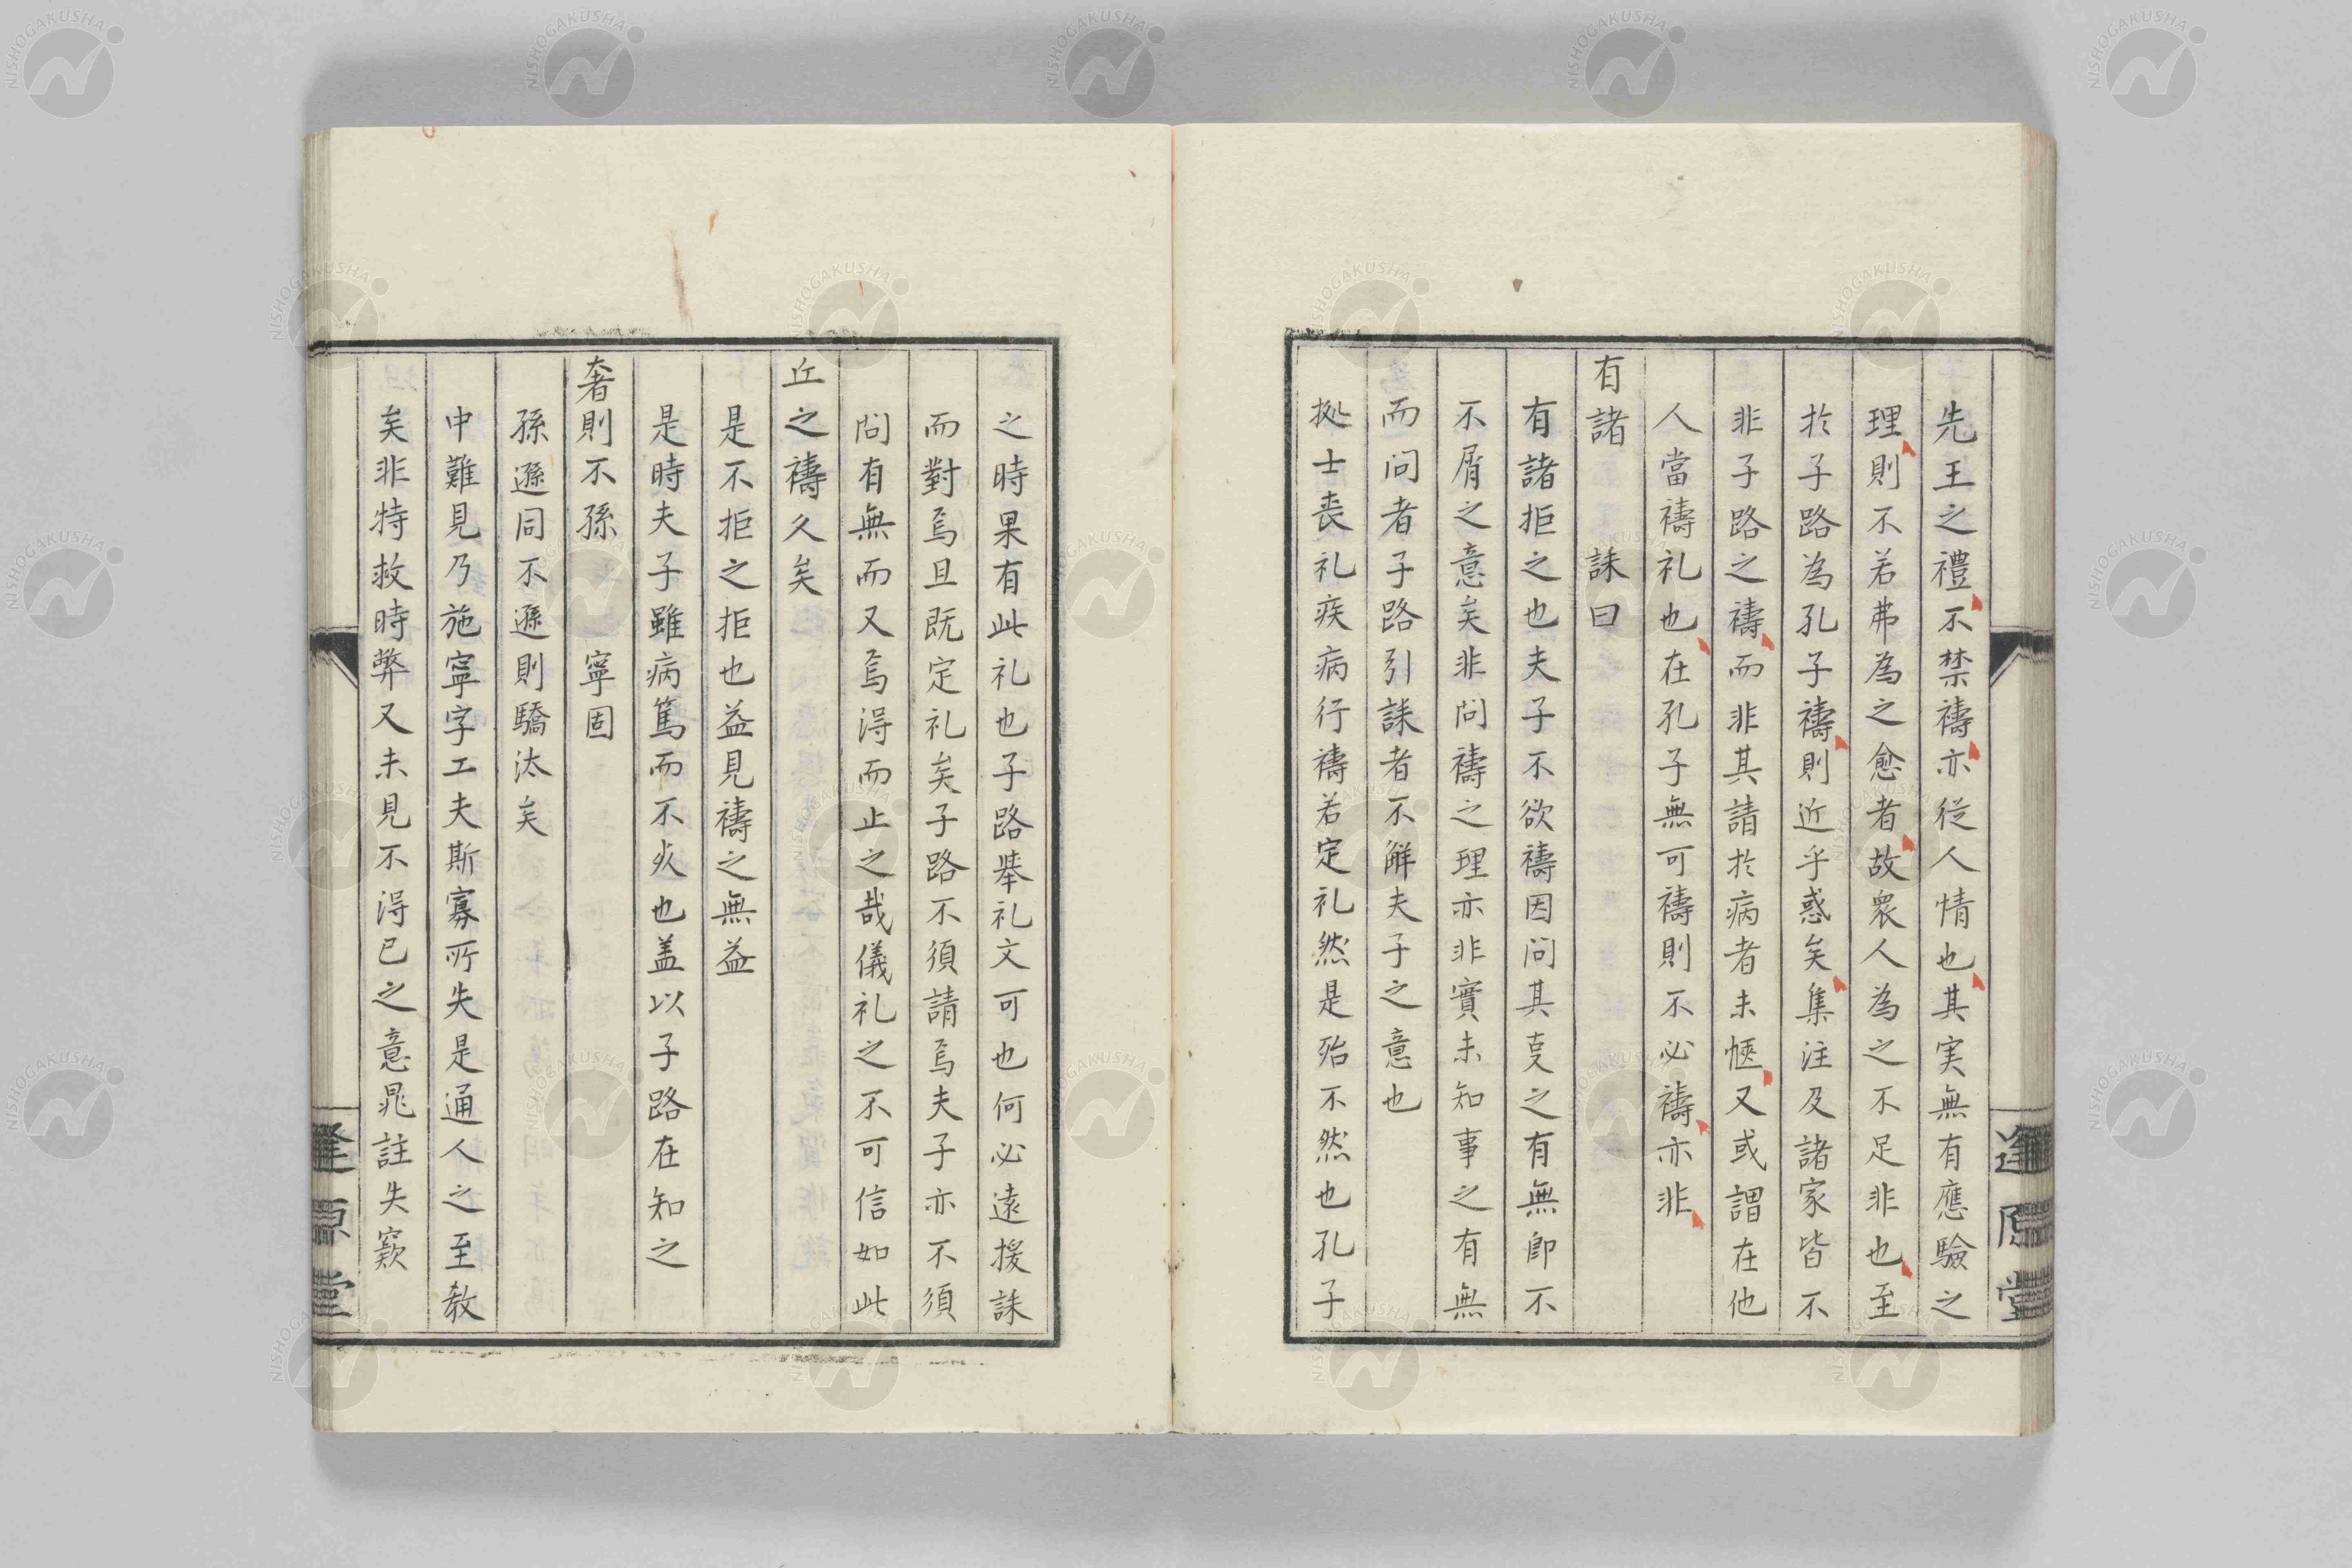 先王之禮不禁禱亦従人情也其実無有應驗之
理則不若弗為之愈者故衆人為之不足非也至
於子路為孔子禱則近乎惑矣集注及諸家皆不
非子路之禱而非其請於病者未愜又或謂在他
人當禱礼也在孔子無可禱則不必禱亦非
有諸 誄曰
有諸拒之也夫子不欲禱因問其㕝之有無即不
不屑之意矣非问禱之理亦非實未知事之有無
而问者子路引誄者不觧夫子之意也
拠士丧礼疾病行禱若定礼然是殆不然也孔子
之時果有此礼也子路举礼文可也何必遠援誄
而對焉且既定礼矣子路不須請焉夫子亦不須
问有無而又焉淂而止之哉儀礼之不可信如此
丘之禱久矣
是不拒之拒也益見禱之無益
是時夫子雖病篤而不火也盖以子路在知之
奢則不孫 寧固
孫遜同不遜則驕汰矣
中難見乃施寧字工夫斯寡所失是通人之至教
矣非特救時弊又未見不淂已之意晁註失窾
逢原堂
逢原堂
NISHOGAKUSHA